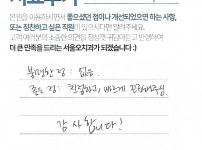 본원을 이용하시면서 좋으셨던 점이나 개선되었으면 하는 사항,
또는 칭찬하고 싶은 직원이 있으시다면 알려주세요.
고객 여러분의 소중한 의견을 정성껏 귀담아듣고 반영하여
더 큰 만족을 드리는 서울오치과가 되겠습니다 :)
불편한 점 : 없음.
좋은 점 : 친절하고, 빠르게 진행해주심.
감사합니다!